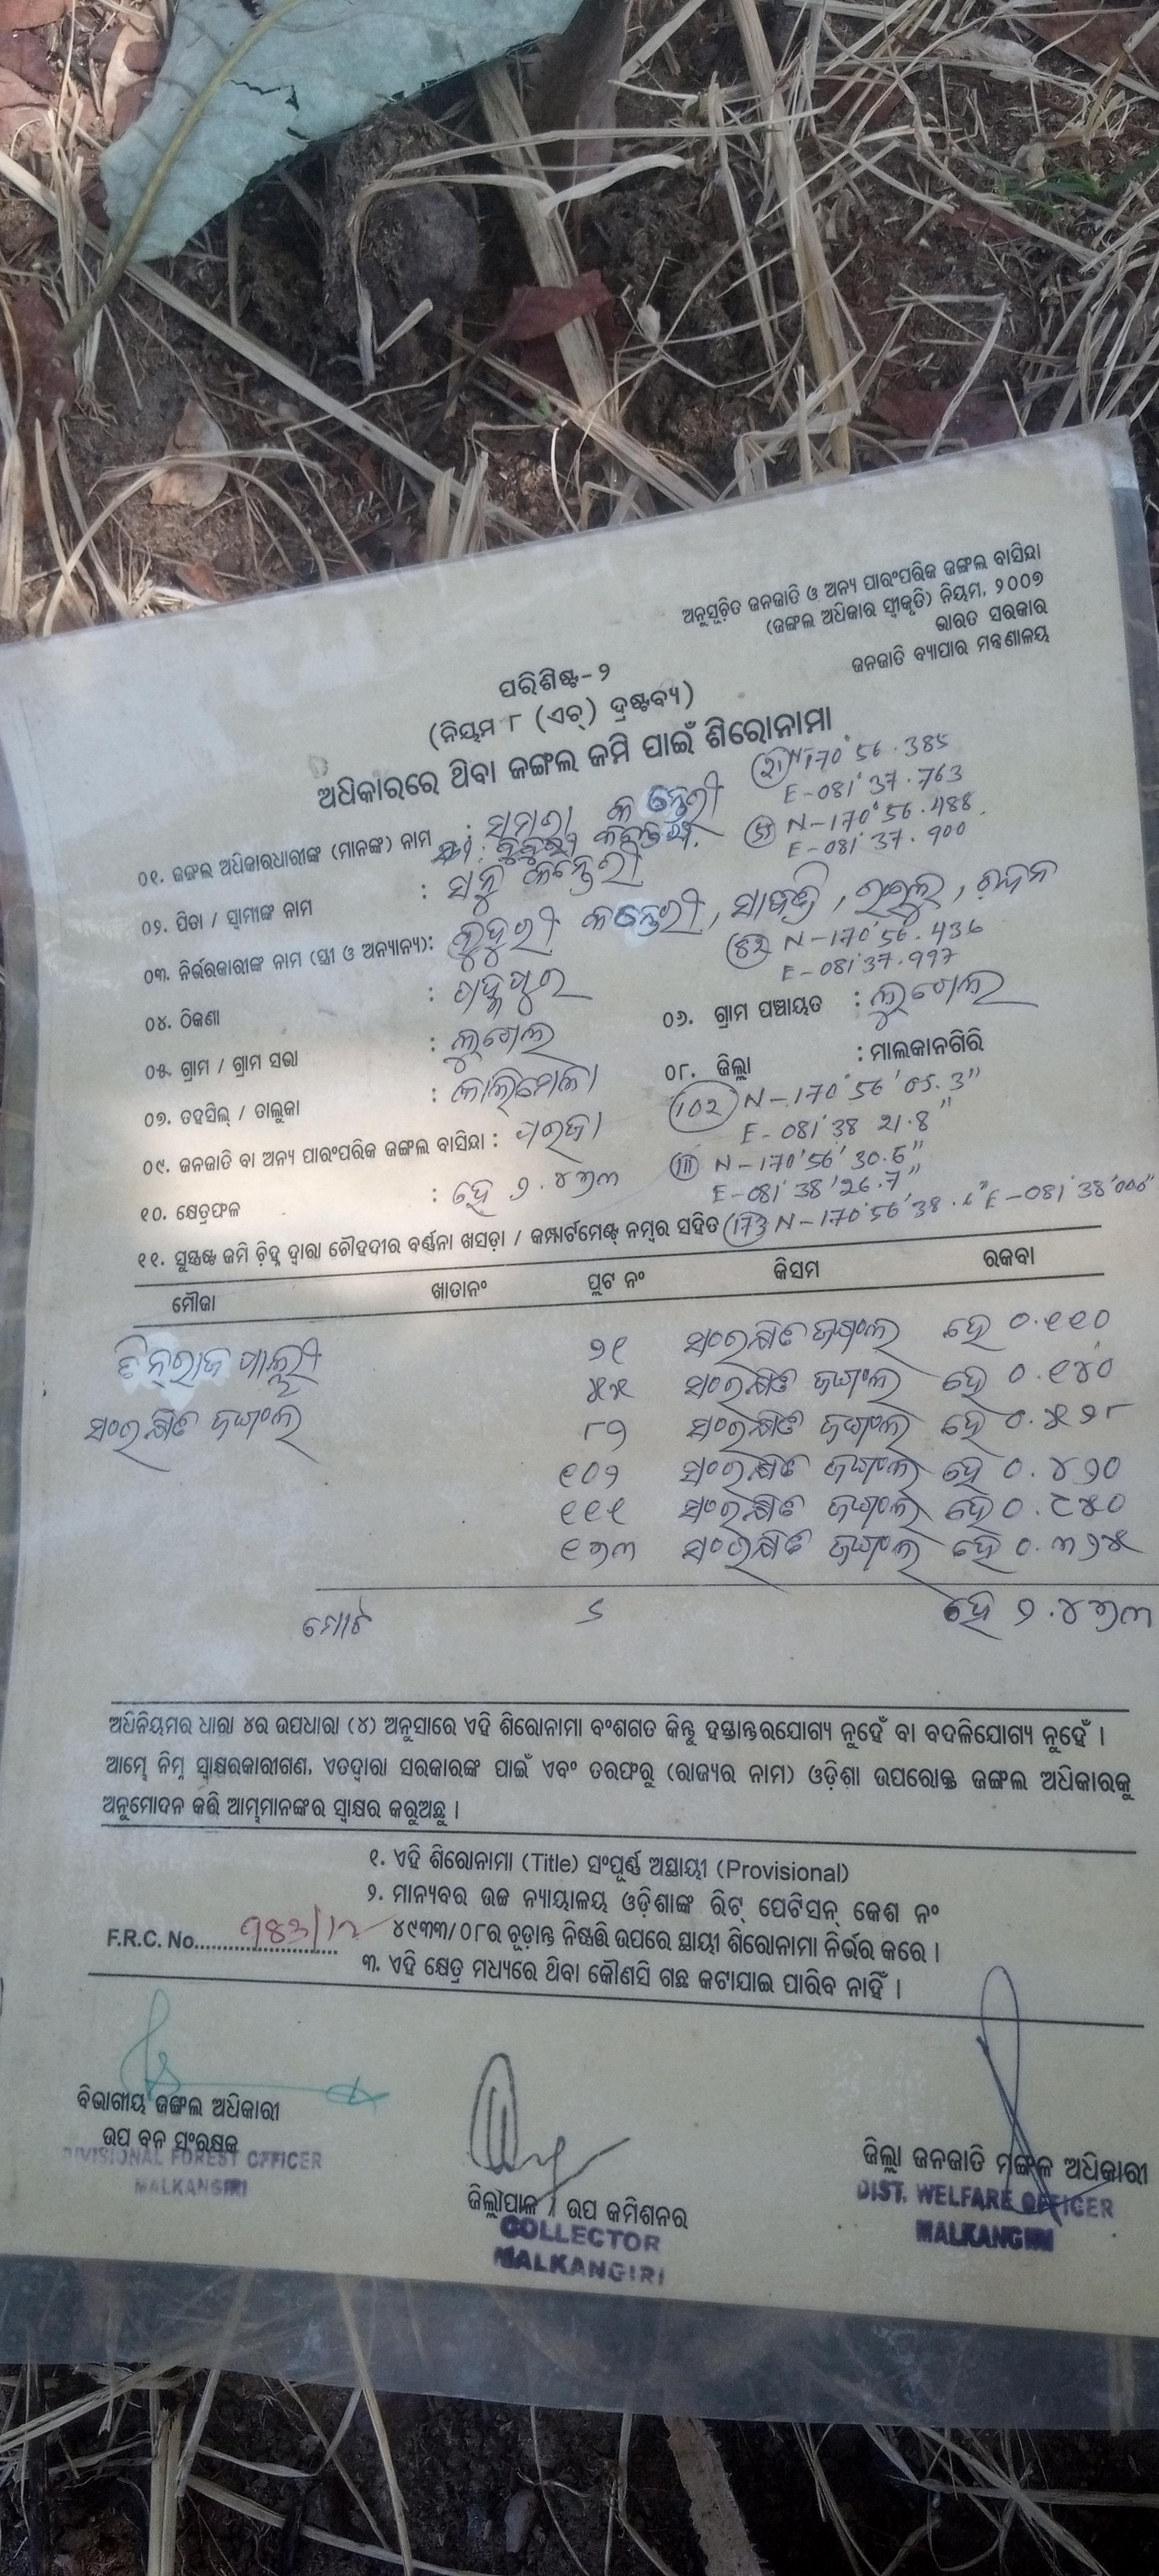 ଅନୁସୂଚିତ ଜନଜାତି ଓ ଅନ୍ୟ ପାରଂପରିକ ଜଙ୍ଗଲ ବାସିନ୍ଦା
(ଜଙ୍ଗଲ ଅଧିକାର ସ୍ୱୀକୃତି) ନିୟମ, ୨୦୦୭
ଭାରତ ସରକାର
ଜନଜାତି ବ୍ୟାପାର ମନ୍ତ୍ରଣାଳୟ
ପରିଶିଷ୍ଟ-୨
(ନିୟମ ୮ (ଏଚ୍) ଦ୍ରଷ୍ଟବ୍ୟ)
ଅଧିକାରରେ ଥିବା ଜଙ୍ଗଲ ଜମି ପାଇଁ ଶିରୋନାମା
N-170°56.385
E-081'37.763
୦୧. ଜଙ୍ଗଲ ଅଧିକାରଧାରୀଙ୍କ (ମାନଙ୍କ) ନାମ :
N-170°56.488
E-081'37.900
୦୨. ପିତା / ସ୍ୱାମୀଙ୍କ ନାମ :
୦୩. ନିର୍ଭରକାରୀଙ୍କ ନାମ (ସ୍ତ୍ରୀ ଓ ଅନ୍ୟାନ୍ୟ):
N-170°56.436
E-081'37.997
୦୪. ଠିକଣା :
୦୫. ଗ୍ରାମ / ଗ୍ରାମ ସଭା : ୦୬. ଗ୍ରାମ ପଞ୍ଚାୟତ :
୦୭. ତହସିଲ୍ / ତାଲୁକା : କାଲିମେଳା ୦୮. ଜିଲ୍ଲା : ମାଲକାନଗିରି
102 N-170°56'05.3"
E-081'38 21.8"
୦୯. ଜନଜାତି ବା ଅନ୍ୟ ପାରଂପରିକ ଜଙ୍ଗଲ ବାସିନ୍ଦା : ପରଜା
111 N-170'56'30.6"
E-081'38'26.7"
୧୦. କ୍ଷେତ୍ରଫଳ : ହେ ୨.୪୭୩
୧୧. ସୁସ୍ପଷ୍ଟ ଜମି ଚିହ୍ନ ଦ୍ୱାରା ଚୌହଦୀର ବର୍ଣ୍ଣନା ଖସଡ଼ା / କମ୍ପାର୍ଟମେଣ୍ଟ୍ ନମ୍ବର ସହିତ 173 N-170°56'
ମୌଜା ଖାତାନଂ ପ୍ଲଟ ନଂ କିସମ ରକବା
୨୧ ସଂରକ୍ଷିତ ଜଙ୍ଗଲ ହେ ୦.୧୧୦
୫୫ ସଂରକ୍ଷିତ ଜଙ୍ଗଲ ହେ ୦.୧୪୦
ସଂରକ୍ଷିତ ଜଙ୍ଗଲ ୮୨ ସଂରକ୍ଷିତ ଜଙ୍ଗଲ ହେ ୦.୫୨୮
୧୦୨ ସଂରକ୍ଷିତ ଜଙ୍ଗଲ ହେ ୦.୪୨୦
୧୧୧ ସଂରକ୍ଷିତ ଜଙ୍ଗଲ ହେ ୦.୯୫୦
୧୭୩ ସଂରକ୍ଷିତ ଜଙ୍ଗଲ ହେ ୦.୩୨୫
ମୋଟ ୬ ହେ ୨.୪୭୩
ଅଧିନିୟମର ଧାରା ୪ର ଉପଧାରା (୪) ଅନୁସାରେ ଏହି ଶିରୋନାମା ବଂଶଗତ କିନ୍ତୁ ହସ୍ତାନ୍ତରଯୋଗ୍ୟ ନୁହେଁ ବା ବଦଳିଯୋଗ୍ୟ ନୁହେଁ ।
ଆମ୍ଭେ ନିମ୍ନ ସ୍ୱାକ୍ଷରକାରୀଗଣ, ଏତଦ୍ୱାରା ସରକାରଙ୍କ ପାଇଁ ଏବଂ ତରଫରୁ (ରାଜ୍ୟର ନାମ) ଓଡ଼ିଶା ଉପରୋକ୍ତ ଜଙ୍ଗଲ ଅଧିକାରକୁ
ଅନୁମୋଦନ କରି ଆମ୍ଭମାନଙ୍କର ସ୍ୱାକ୍ଷର କରୁଅଛୁ ।
୧. ଏହି ଶିରୋନାମା (Title) ସଂପୂର୍ଣ୍ଣ ଅସ୍ଥାୟୀ (Provisional)
୨. ମାନ୍ୟବର ଉଚ୍ଚ ନ୍ୟାୟାଳୟ ଓଡ଼ିଶାଙ୍କ ରିଟ୍ ପେଟିସନ୍ କେଶ ନଂ
୪୯୩୩/୦୮ର ଚୂଡ଼ାନ୍ତ ନିଷ୍ପତ୍ତି ଉପରେ ସ୍ଥାୟୀ ଶିରୋନାମା ନିର୍ଭର କରେ ।
F.R.C. No. 983/12
୩. ଏହି କ୍ଷେତ୍ର ମଧ୍ୟରେ ଥିବା କୌଣସି ଗଛ କଟାଯାଇ ପାରିବ ନାହିଁ ।
ବିଭାଗୀୟ ଜଙ୍ଗଲ ଅଧିକାରୀ
ଉପ ବନ ସଂରକ୍ଷକ
DIVISIONAL FOREST OFFICER
MALKANGIRI
ଜିଲ୍ଲାପାଳ / ଉପ କମିଶନର
COLLECTOR
MALKANGIRI
ଜିଲ୍ଲା ଜନଜାତି ମଙ୍ଗଳ ଅଧିକାରୀ
DIST. WELFARE OFFICER
MALKANGIRI